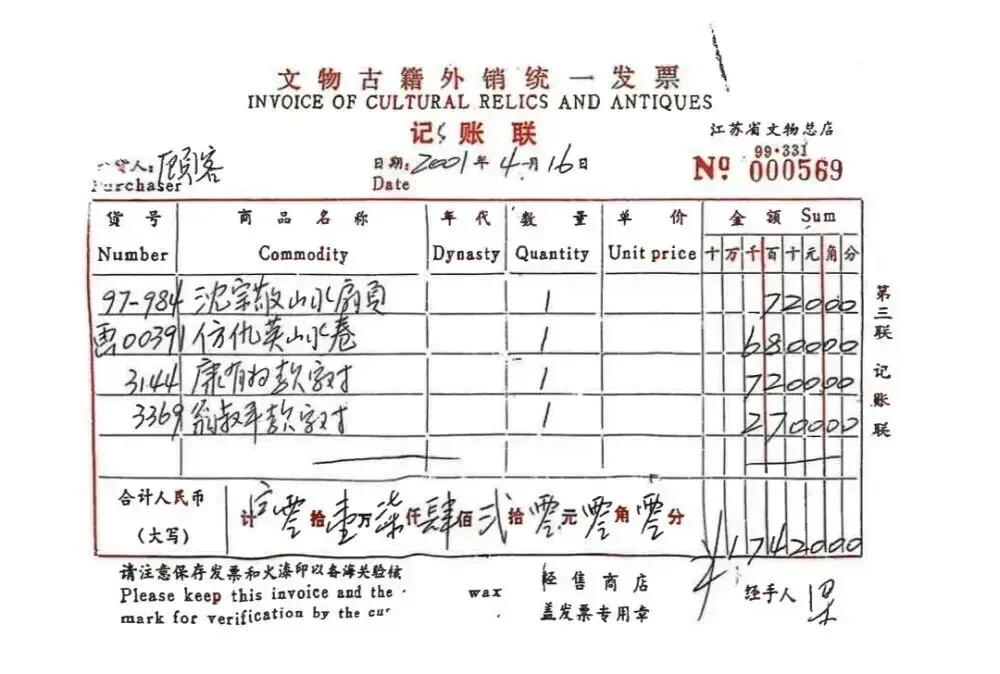 文物古籍外销统一发票
INVOICE OF CULTURAL RELICS AND ANTIQUES
记账联
江苏省文物总店
99·331
Nº 000569
货人: 顾客
Purchaser
日期: 2001年4月16日
Date
货号 商品名称 年代 数量 单价 金额 Sum
Number Commodity Dynasty Quantity Unit price 十万千百十元角分
97-984 沈宗敬山水扇頁 1 72000
画00391 仿仇英山水卷 1 680000
3144 康有为款字对 1 720000
3369 翁叔平款字对 1 270000
合计人民币
(大写)
计 零拾壹万柒仟肆佰贰拾零元零角零分
¥1742000
第三联 记账联
请注意保存发票和火漆印以备海关验核
Please keep this invoice and the wax
mark for verification by the cus
经售商店
盖发票专用章
经手人